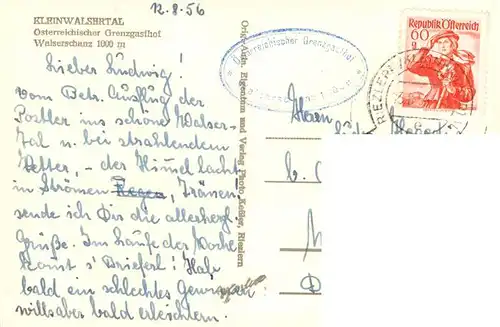 12.8.56
KLEINWALSERTAL
Österreichischer Grenzgasthof
Walserschanz 1000 m
Lieber Ludwig!
vom Betr. Ausflug der
Postler ins schöne Walser-
tal u. bei strahlendem
Wetter, – der Himmel lacht
in Strömen Regen, Tränen,
sende ich Dir die allerherzl.
Grüße. Im Laufe der Woche
kommt s' Brieferl! Habe
bald ein schlechtes Gewissen
will's aber bald erleichtern.
Orig.-Aufn. Eigentum und Verlag Photo Keßler, Riezlern
Österreichischer Grenzgasthof
Republik Österreich
60
g
RIEZLERN
Herrn